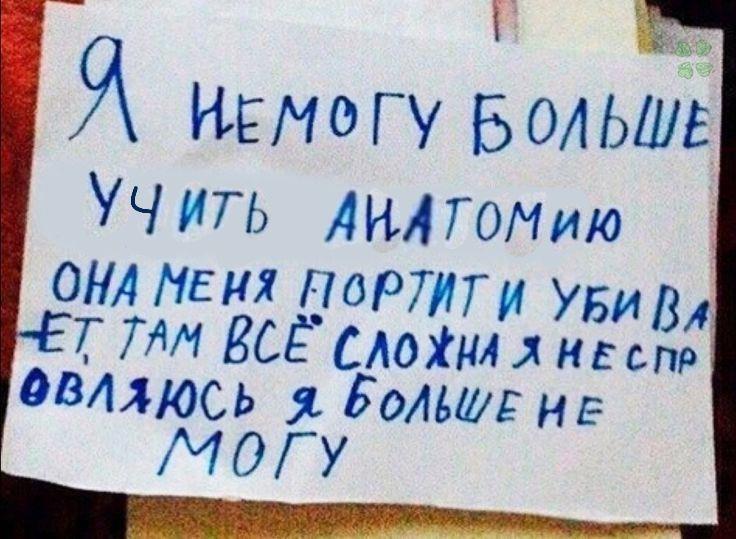 Я НЕМОГУ БОЛЬШЕ
УЧИТЬ АНАТОМИЮ
ОНА МЕНЯ ПОРТИТ И УБИВА
ЕТ, ТАМ ВСЁ СЛОЖНА Я НЕ СПР
ОВЛЯЮСЬ Я БОЛЬШЕ НЕ
МОГУ